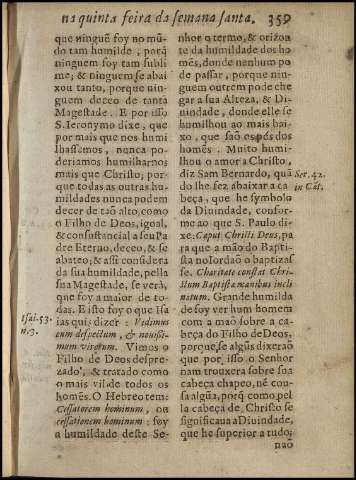 na quinta feira da semana santa. 359
que ninguẽ foy no mũ-
do tam humilde, porq̃
ninguem foy tam subli
me; & ninguem se abai
xou tanto, porque nin-
guem deceo de tanta
Magestade. E por isso
S. Ieronymo dixe, que
por mais que nos humi
lhassemos, nunca po-
deriamos humilharnos
mais que Christo; por-
que todas as outras hu-
mildades nunca podem
decer de taõ alto, como
o Filho de Deos, igoal,
& consustãcial a seu Pa
dre Eterno, deceo, & se
abateo; & assi considera
da sua humildade, pella
sua Magestade, se verà,
que foy a maior de to-
das. E isto foy o que Isa
Isai. 53.
ias quis dizer: Vedimus
n. 3.
eum despectum, & nouissi-
mum virorum. Vimos o
Filho de Deos despre-
zado, & tratado como
o mais vil de todos os
homẽs. O Hebreo tem:
Cessatorem hominum, ou
cessationem hominum: foy
a humildade deste Se-
nhor o termo, & orizon
te da humildade dos ho
mẽs, donde nenhum po
de passar, porque nin-
guem outrem pode che
gar a sua Alteza, & Di-
uindade, donde elle se
humilhou ao mais bai-
xo, que saõ os pés dos
homẽs. Muito humi-
lhou o amor a Christo,
diz Sam Bernardo, quã
Ser. 42.
do lhe fez abaixar a ca
in Cãt.
beça, que he symbolo
da Diuindade, confor-
me ao que S. Paulo di-
xe: Caput Christi Deus, pa
ra que a mão do Baptis-
ta no Iordaõ o baptizas
se. Charitate constat Chri-
stum Baptistæ manibus incli
natum. Grande humilda
de foy ver hum homem
com a maõ sobre a ca-
beça do Filho de Deos,
porque, se algũs dixeraõ
que por isso o Senhor
nam trouxera sobre sua
cabeça chapeo, nẽ cou-
sa algũa, porq̃ como pel
la cabeça de Christo se
significaua a Diuindade,
que he superior a tudo,
naõ